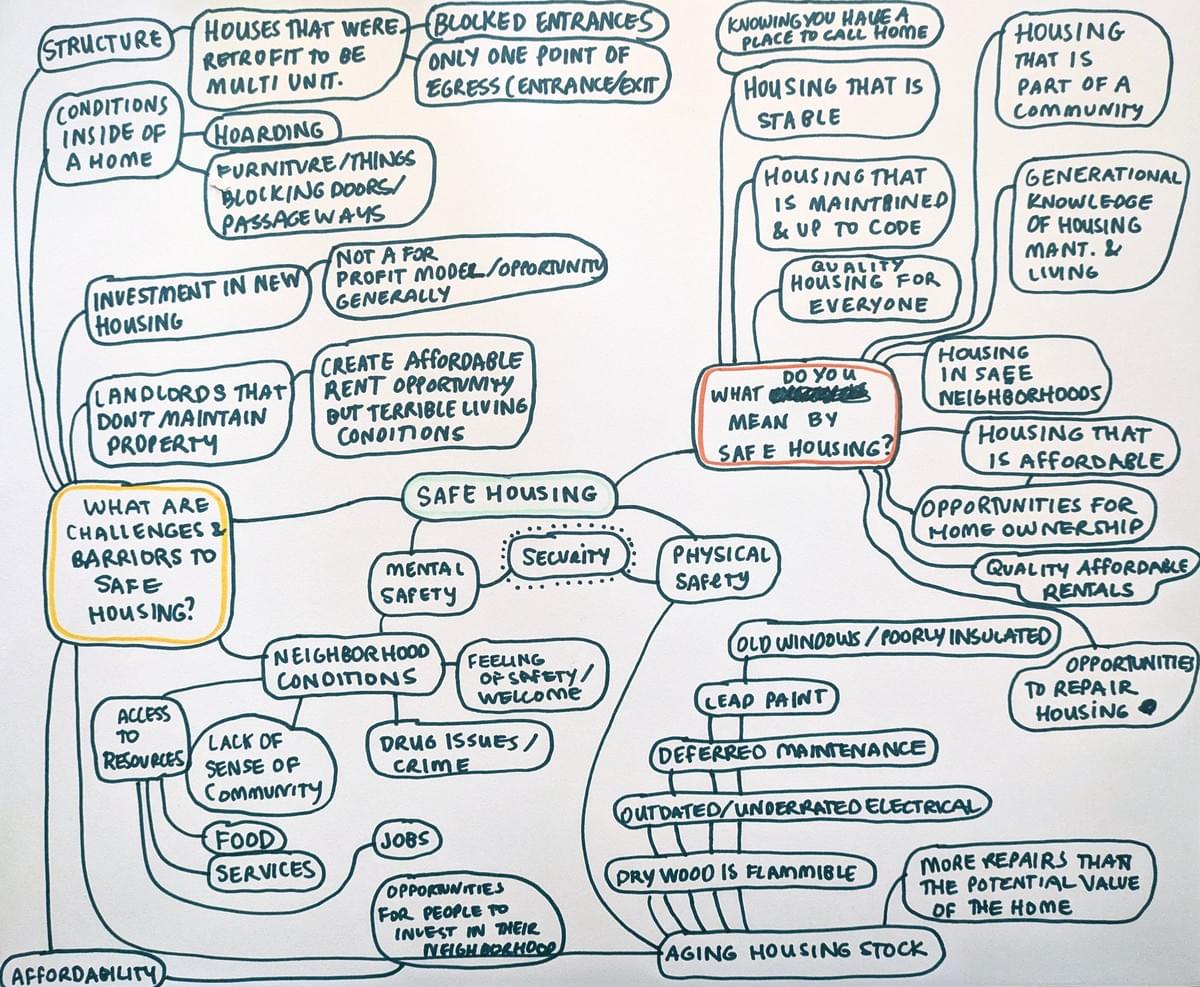 STRUCTURE
HOUSES THAT WERE
RETROFIT TO BE
MULTI UNIT.
BLOCKED ENTRANCES
ONLY ONE POINT OF
EGRESS (ENTRANCE/EXIT
CONDITIONS
INSIDE OF
A HOME
HOARDING
FURNITURE/THINGS
BLOCKING DOORS/
PASSAGEWAYS
INVESTMENT IN NEW
HOUSING
NOT A FOR
PROFIT MODEL/OPPORTUNITY
GENERALLY
LANDLORDS THAT
DONT MAINTAIN
PROPERTY
CREATE AFFORDABLE
RENT OPPORTUNITY
BUT TERRIBLE LIVING
CONDITIONS
WHAT ARE
CHALLENGES &
BARRIORS TO
SAFE
HOUSING?
SAFE HOUSING
MENTAL
SAFETY
SECURITY
PHYSICAL
SAFETY
NEIGHBORHOOD
CONDITIONS
FEELING
OF SAFETY/
WELCOME
ACCESS
TO
RESOURCES
LACK OF
SENSE OF
COMMUNITY
DRUG ISSUES/
CRIME
FOOD
SERVICES
JOBS
OPPORTUNITIES
FOR PEOPLE TO
INVEST IN THEIR
NEIGHBORHOOD
AFFORDABILITY
KNOWING YOU HAVE A
PLACE TO CALL HOME
HOUSING THAT IS
STABLE
HOUSING THAT
IS MAINTAINED
& UP TO CODE
QUALITY
HOUSING FOR
EVERYONE
HOUSING
THAT IS
PART OF A
COMMUNITY
GENERATIONAL
KNOWLEDGE
OF HOUSING
MANT. &
LIVING
WHAT DO YOU
MEAN BY
SAFE HOUSING?
HOUSING
IN SAFE
NEIGHBORHOODS
HOUSING THAT
IS AFFORDABLE
OPPORTUNITIES FOR
HOME OWNERSHIP
QUALITY AFFORDABLE
RENTALS
OPPORTUNITIES
TO REPAIR
HOUSING
OLD WINDOWS/POORLY INSULATED
LEAD PAINT
DEFERRED MAINTENANCE
OUTDATED/UNDERRATED ELECTRICAL
DRY WOOD IS FLAMMIBLE
MORE REPAIRS THAN
THE POTENTIAL VALUE
OF THE HOME
AGING HOUSING STOCK